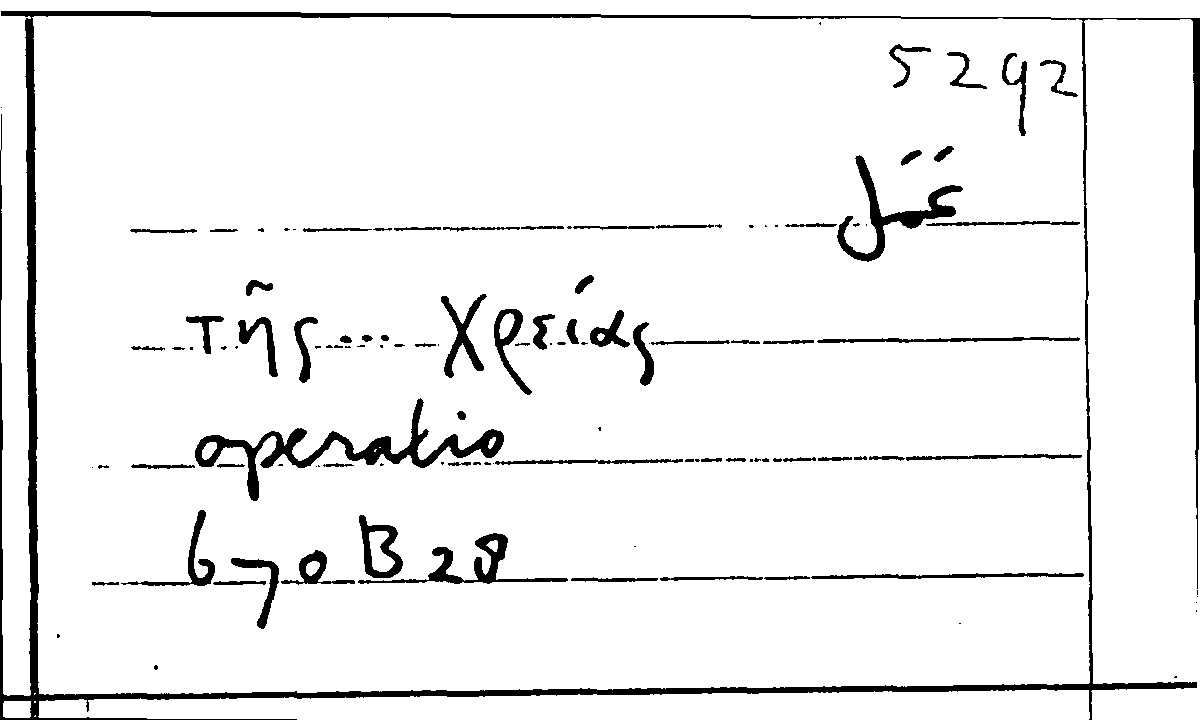 5292
τῆς... χρείας
operatio
670 B 28